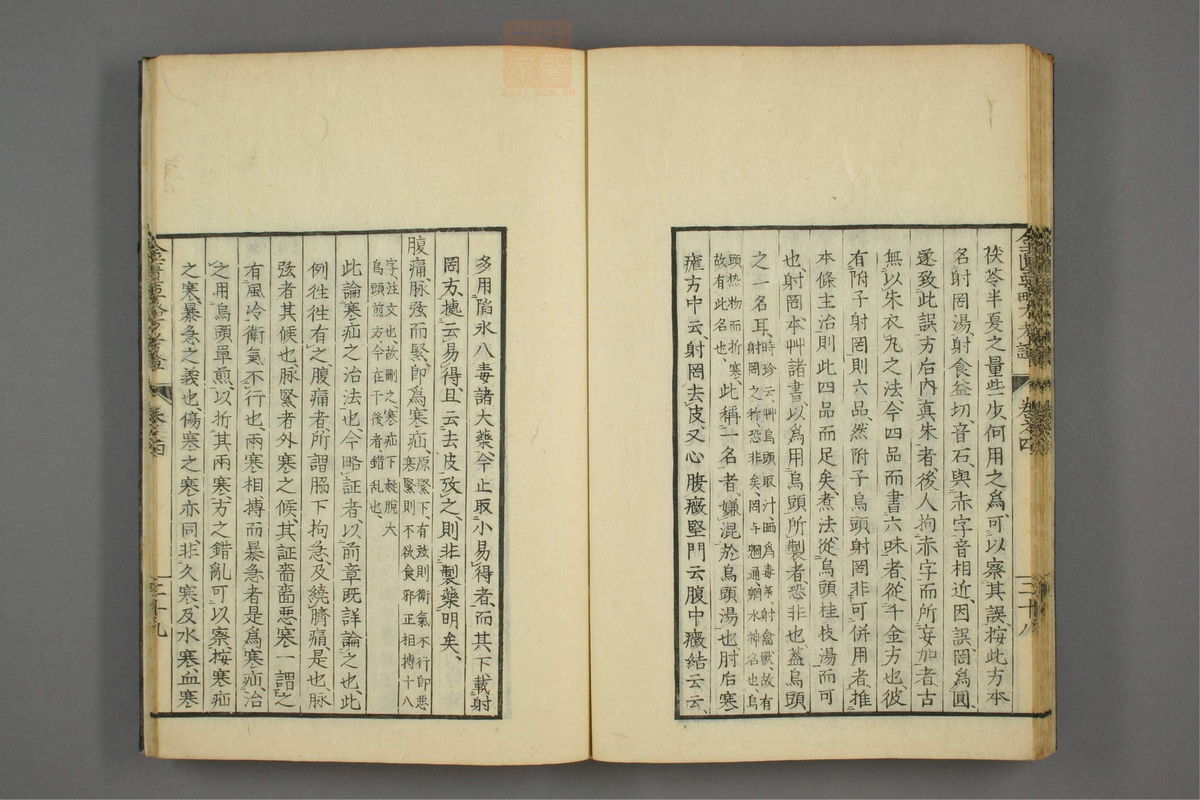 茯苓半夏之量些少何用之爲可以察其誤按此方本
名射罔湯射食益切音石與赤字音相近因誤罔爲圓
遂致此誤方后內真朱者後人拘赤字而所妄加者古
無以朱衣丸之法今四品而書六味者從千金方也彼
有附子射罔則六品然附子烏頭射罔非可併用者推
本條主治則此四品而足矣煮法從烏頭桂枝湯而可
也射罔本艸諸書以爲用烏頭所製者恐非也蓋烏頭
之一名耳時珍云艸烏頭取汁晒爲毒藥射禽獸故有
射罔之称恐非矣罔与魍通魍水神名也烏
頭热物而折寒
故有此名也此稱一名者嫌混於烏頭湯也肘后寒
疝方中云射罔去皮又心腹癥堅門云腹中癥結云云
三十八
多用䧟氷八毒諸大藥今止取小易得者而其下載射
罔方㨿云易得且云去皮攷之則非製藥明矣
腹痛脉弦而緊卽爲寒疝原緊下有弦則衛氣不行卽悪
寒緊則不欲食邪正相搏十八
字注文也故刪之寒疝下疑脫大
烏頭煎方今在于後者錯乱也
此論寒疝之治法也今略証者以前章旣詳論之也此
例徃徃有之腹痛者所謂脇下拘急及繞臍痛是也脉
弦者其候也脉緊者外寒之候其証嗇嗇悪寒一謂之
有風冷衛氣不行也兩寒相搏而暴急者是爲寒疝治
之用烏頭單煎以折其兩寒方之錯亂可以察按寒疝
之寒暴急之義也傷寒之寒亦同非久寒及水寒血寒
卷之四
三十九